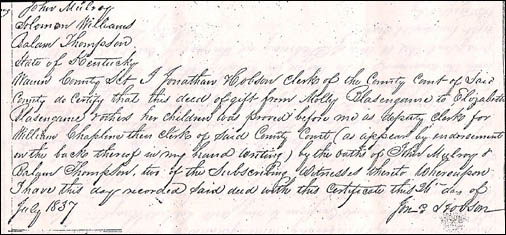 John Mulroy
Solomon Williams
Balam Thompson
State of Kentucky
Warren County Sct I Jonathan Hobson clerk of the County Court of Said
County do Certify that this deed of gift from Molly Blasengame to Elizabeth
Blasengame & others her children was proved before me as deputy Clerk for
William Chapline then clerk of Said County Court (as appears by endorsement
on the back thereof in my hand writing) by the oaths of John Mulroy &
Balam Thompson, two of the Subscribing Witnesses thereto Whereupon
I have this day recorded Said deed with this Certificate this 26th day of
July 1837
Jon: Hobson